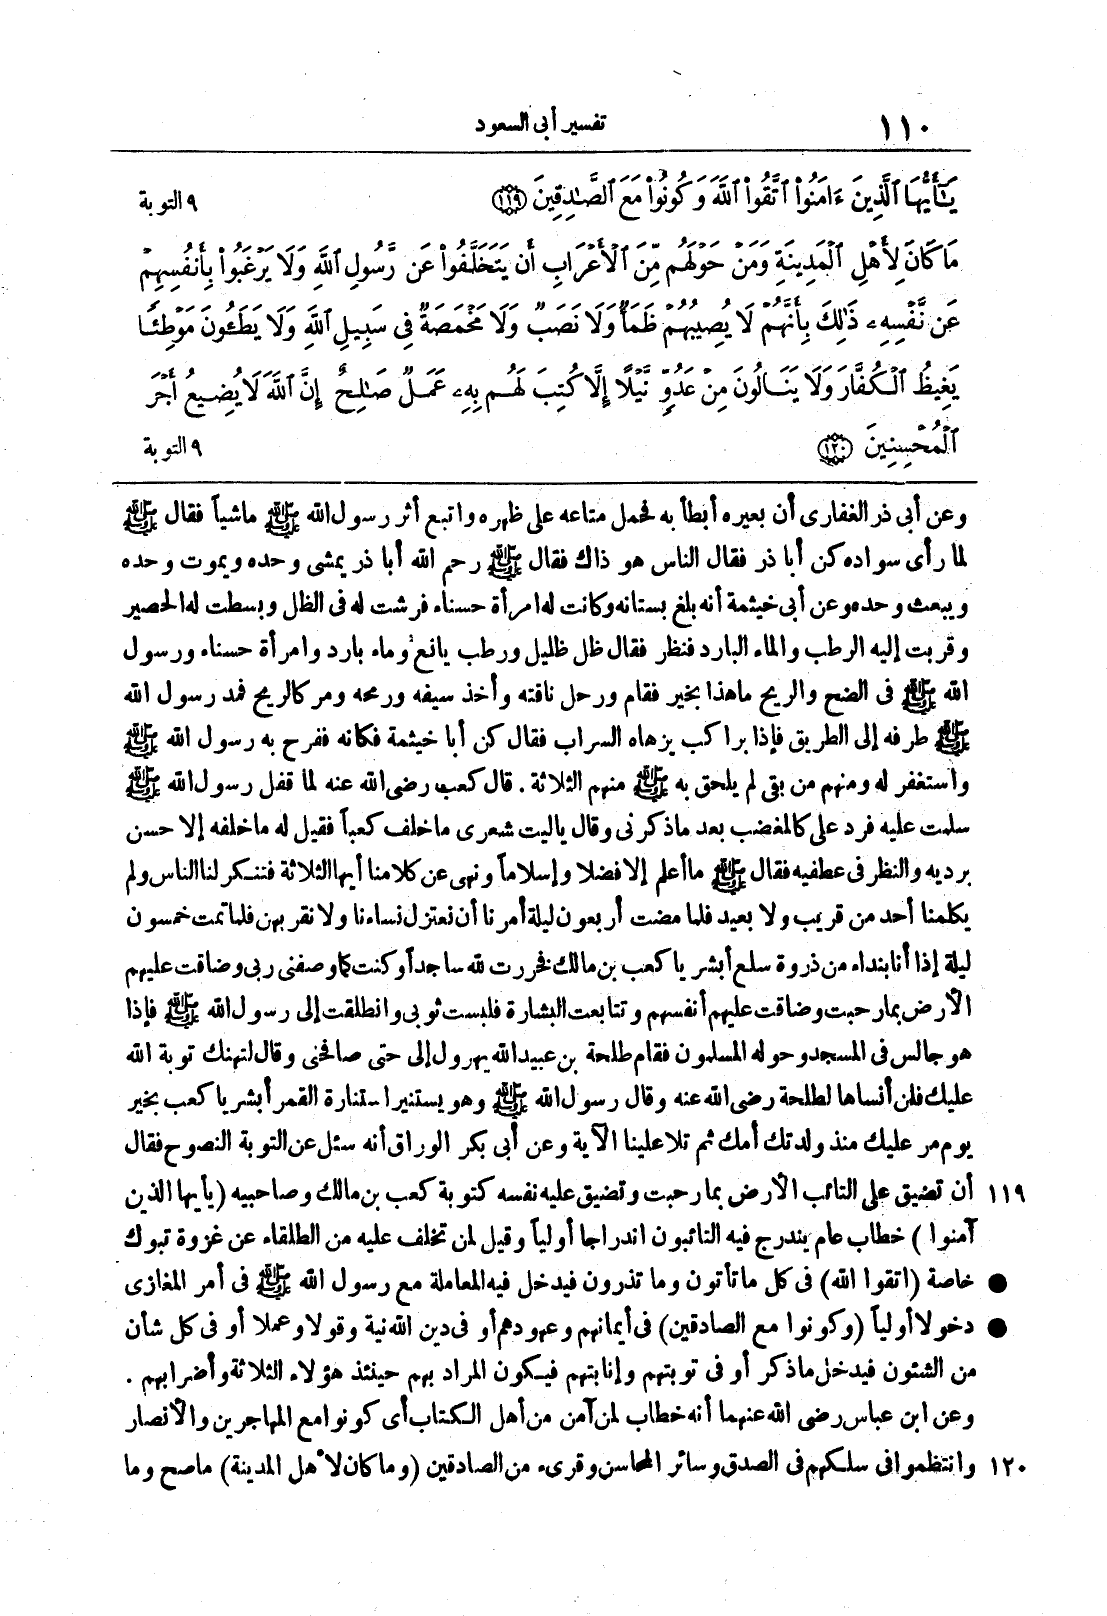 ١١٠ تفسير أبى السعود
يَٰٓأَيُّهَا ٱلَّذِينَ ءَامَنُوا۟ ٱتَّقُوا۟ ٱللَّهَ وَكُونُوا۟ مَعَ ٱلصَّٰدِقِينَ ﴿١١٩﴾ ٩ التوبة
مَا كَانَ لِأَهْلِ ٱلْمَدِينَةِ وَمَنْ حَوْلَهُم مِّنَ ٱلْأَعْرَابِ أَن يَتَخَلَّفُوا۟ عَن رَّسُولِ ٱللَّهِ وَلَا يَرْغَبُوا۟ بِأَنفُسِهِمْ
عَن نَّفْسِهِۦ ذَٰلِكَ بِأَنَّهُمْ لَا يُصِيبُهُمْ ظَمَأٌ وَلَا نَصَبٌ وَلَا مَخْمَصَةٌ فِى سَبِيلِ ٱللَّهِ وَلَا يَطَـُٔونَ مَوْطِئًا
يَغِيظُ ٱلْكُفَّارَ وَلَا يَنَالُونَ مِنْ عَدُوٍّ نَّيْلًا إِلَّا كُتِبَ لَهُم بِهِۦ عَمَلٌ صَٰلِحٌ إِنَّ ٱللَّهَ لَا يُضِيعُ أَجْرَ
ٱلْمُحْسِنِينَ ﴿١٢٠﴾ ٩ التوبة
وعن أبى ذر الغفارى أن بعيره أبطأ به فحمل متاعه على ظهره واتبع أثر رسول الله ﷺ ماشياً فقال ﷺ
لما رأى سواده كن أبا ذر فقال الناس هو ذاك فقال ﷺ رحم الله أبا ذر يمشى وحده ويموت وحده
ويبعث وحده وعن أبى خيثمة أنه بلغ بستانه وكانت له امرأة حسناء فرشت له فى الظل وبسطت له الحصير
وقربت إليه الرطب والماء البارد فنظر فقال ظل ظليل ورطب يانع وماء بارد وامرأة حسناء ورسول
الله ﷺ فى الضح والريح ماهذا بخير فقام ورحل ناقته وأخذ سيفه ورمحه ومر كالريح فمد رسول الله
ﷺ طرفه إلى الطريق فإذا براكب يزهاه السراب فقال كن أبا خيثمة فكانه ففرح به رسول الله ﷺ
واستغفر له ومنهم من بقى لم يلحق به ﷺ منهم الثلاثة . قال كعب رضى الله عنه لما قفل رسول الله ﷺ
سلمت عليه فرد على كالمغضب بعد ماذكرنى وقال ياليت شعرى ماخلف كعباً فقيل له ماخلفه إلا حسن
برديه والنظر فى عطفيه فقال ﷺ ماأعلم إلا فضلا وإسلاماً ونهى عن كلامنا أيها الثلاثة فتنكر لنا الناس ولم
يكلمنا أحد من قريب ولا بعيد فلما مضت أربعون ليلة أمرنا أن نعتزل نساءنا ولا نقربهن فلما تمت خمسون
ليلة إذا أنا بنداء من ذروة سلع أبشر يا كعب بن مالك فخررت لله ساجداً وكنت كما وصفنى ربى وضاقت عليهم
الأرض بما رحبت وضاقت عليهم أنفسهم وتتابعت البشارة فلبست ثوبى وانطلقت إلى رسول الله ﷺ فإذا
هو جالس فى المسجد وحوله المسلمون فقام طلحة بن عبيد الله يهرول إلى حتى صافحنى وقال لتهنك توبة الله
عليك فلن أنساها لطلحة رضى الله عنه وقال رسول الله ﷺ وهو يستنير استنارة القمر أبشر يا كعب بخير
يوم مر عليك منذ ولدتك أمك ثم تلا علينا الآية وعن أبى بكر الوراق أنه سئل عن التوبة النصوح فقال
١١٩ أن تضيق على التائب الأرض بما رحبت وتضيق عليه نفسه كتوبة كعب بن مالك وصاحبيه (يأيها الذين
آمنوا) خطاب عام يندرج فيه التائبون اندراجا أولياً وقيل لمن تخلف عليه من الطلقاء عن غزوة تبوك
● خاصة (اتقوا الله) فى كل ما تأتون وما تذرون فيدخل فيه المعاملة مع رسول الله ﷺ فى أمر المغازى
● دخولا أولياً (وكونوا مع الصادقين) فى أيمانهم وعهودهم أو فى دين الله نية وقولا وعملا أو فى كل شأن
من الشئون فيدخل ماذكر أو فى توبتهم وإنابتهم فيكون المراد بهم حينئذ هؤلاء الثلاثة وأضرابهم .
وعن ابن عباس رضى الله عنهما أنه خطاب لمن آمن من أهل الكتاب أى كونوا مع المهاجرين والأنصار
١٢٠ وانتظموا فى سلكهم فى الصدق وسائر المحاسن وقرىء من الصادقين (وما كان لأهل المدينة) ماصح وما